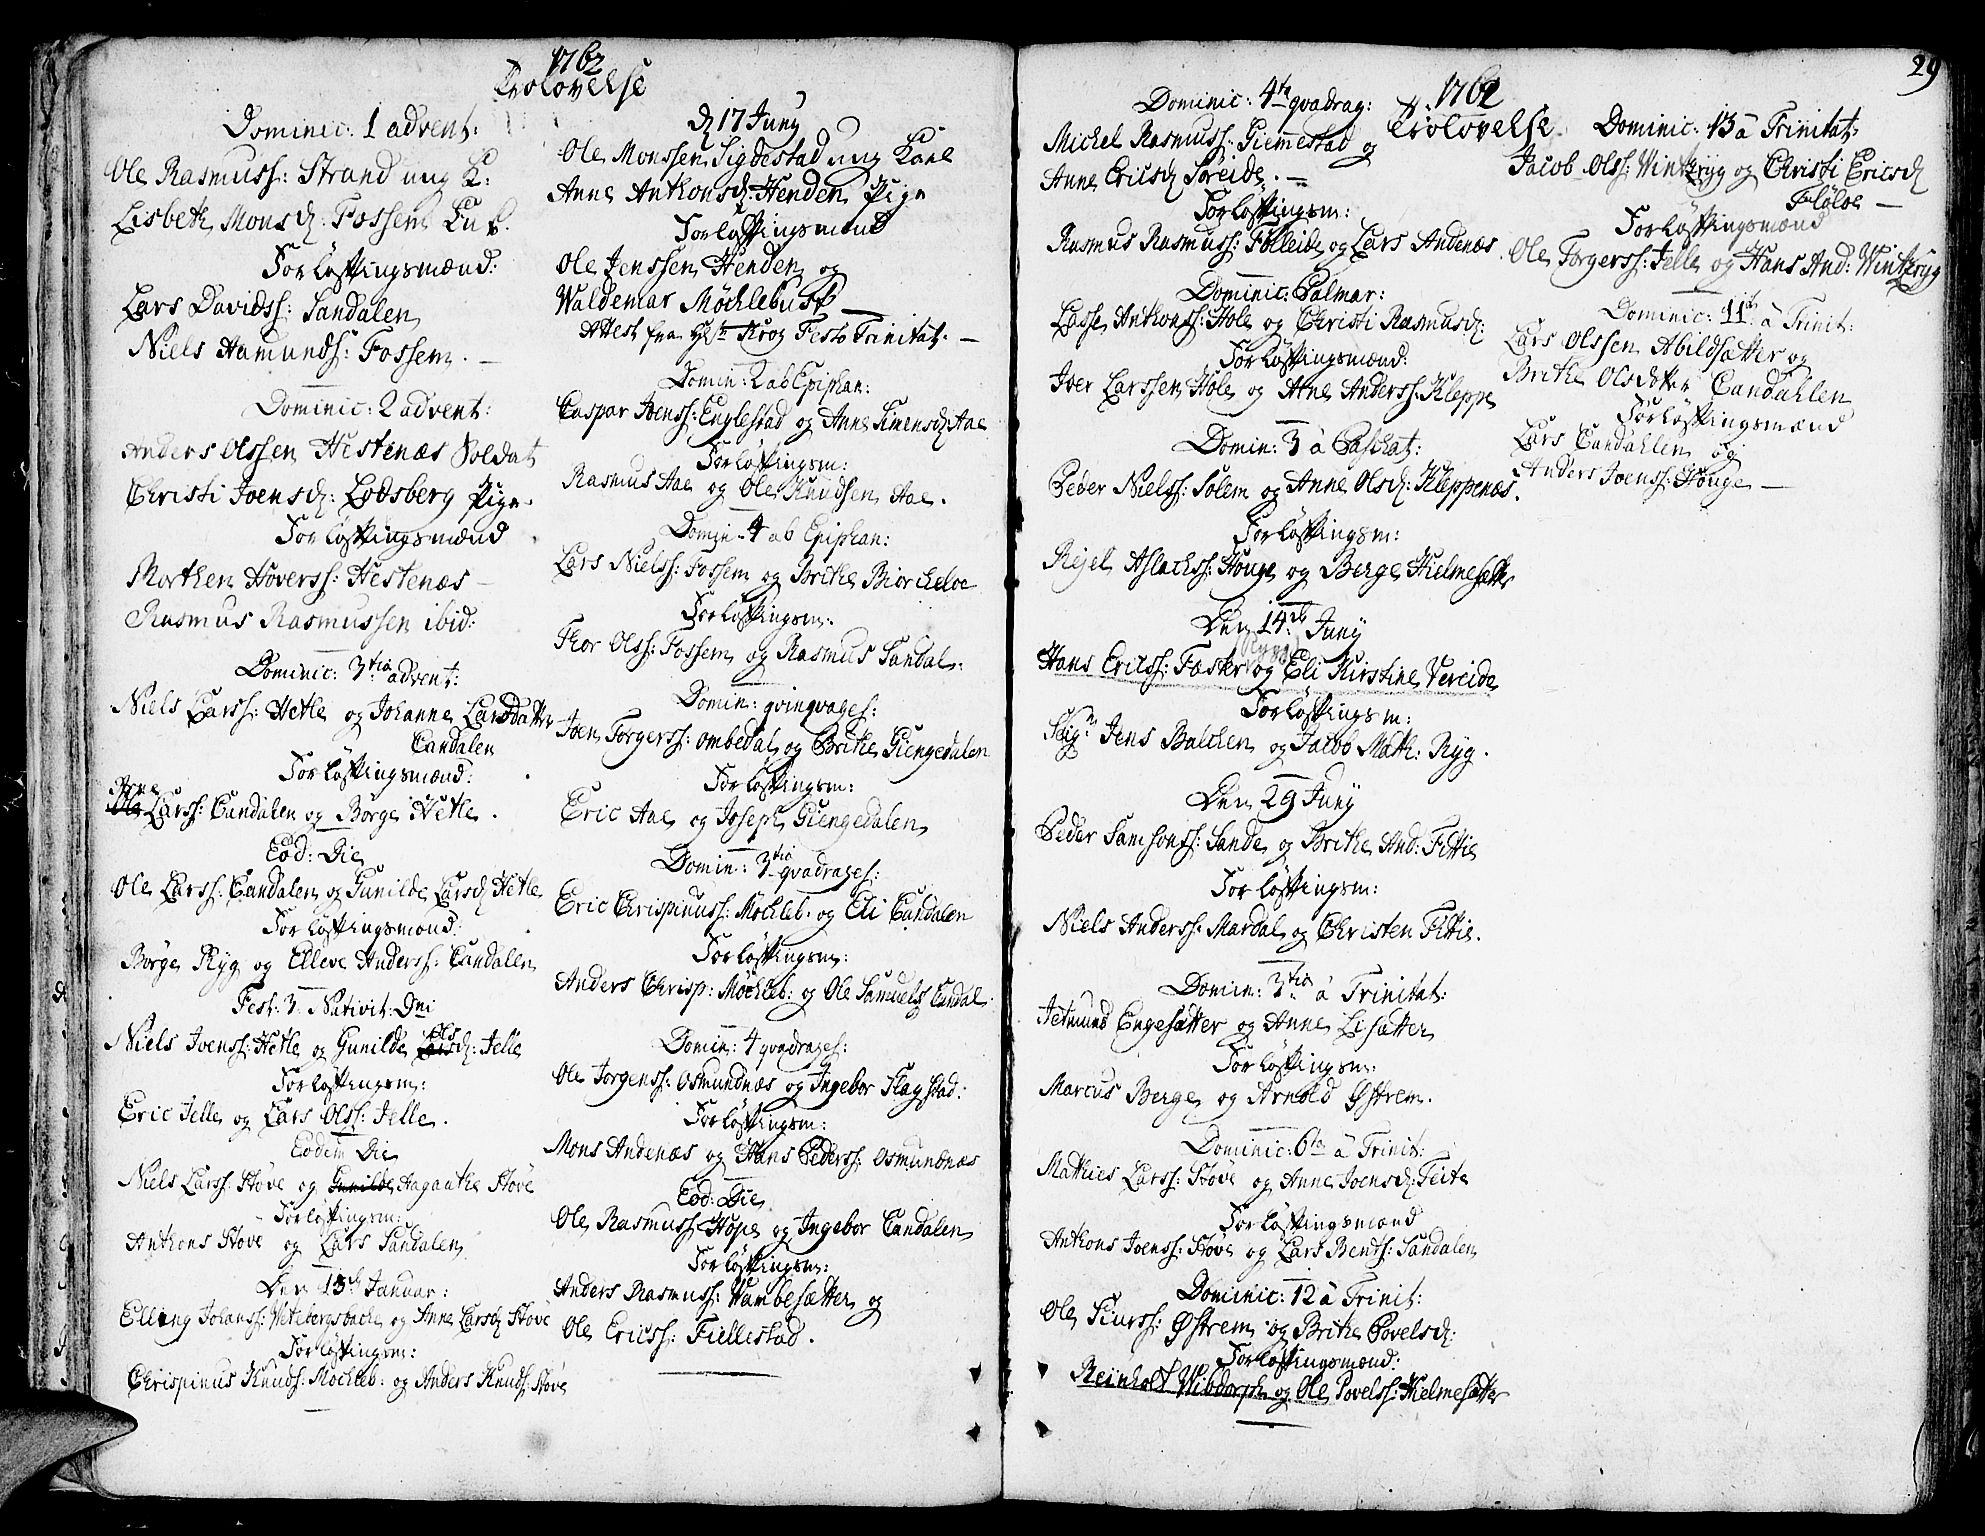 1762
Trolovelse
Dominic: 1 advent:
Ole Rasmuss: Strand ung K:
Lisbeth Monsd: Fossem
Forløftingsmænd:
Lars Davidss: Sandalen
Niels Hamunds: Fossem. —
Dominic: 2 advent:
Anders Olssen Hestenæs Soldat
Christi Joensd: Lodsberg Pige.
Forløftingsmænd
Morthen Hoverss: Hestenæs —
Rasmus Rasmussen ibid:
Dominic: 3tia advent:
Niels Larss: Hetle og Johanne Larsdatter
Candalen
Forløftingsmænd:
Arne
Ole Larss: Candalen og Børge Hetle.
Eod: Die
Ole Larss: Candalen og Gunilde Larsd Hetle
Forløftingsmænd:
Børge Ryg og Elleve Anderss: Candalen
Fest: 3 Nativit: Dni
Niels Joenss: Hetle og Gunilde Ols Larsd: Jelle
Forløftingsm:
Eric Jelle og Lars Olss: Jelle.
Eodem Die
Niels Larss: Støve og Gunilde Aagaathe Støve
Forløftingsm:
Anthons Støve og Lars Sandalen
Den 13de Januar:
Elling Johanss: Vitebergsbache og Anne Larsd: Støve
Forløftingsm:
Chrispinus Knuds: Mochleb: og Anders Knuds: Støve
d 17 Juny
Ole Monssen Sigdestad ung Karl
Anne Anthonsd: Henden Pige
Forløftingsmænd
Ole Jenssen Henden og
Waldemar Møchlebust —
Attest fra Hr. Krog Festo Trinitat. —
Domin: 2 ab Epiphan:
Caspar Joenss: Englestad og Anne Simensd: Aae
Forløftingsm:
Rasmus Aae og Ole Knudsen Aae.
Domin. 4 ab Epiphan:
Lars Nielss: Fossem og Brithe Biorcheloe
Forløftingsm:
Thor Olss: Fossem og Rasmus Sandal:
Domin: qvinqvages:
Joen Torgerss: Ombedal og Brithe Giengedalen
Forløftingsm:
Eric Aae og Joseph Giengedalen
Domin: 3tia qvadrages:
Eric Chrispinuss: Mochleb: og Eli Candalen
Forløftingsm:
Anders Chrisp: Møchleb: og Ole Samuels Candal.
Domin: 4 qvadrages:
Ole Jorgenss: Osmundnæs og Ingebor Flagstad:
Forløftingsm:
Mons Andenæs og Hans Pederss: Osmundnæs
Eod: Die
Ole Rasmuss: Hope og Ingebor Candalen
Forløftingsm:
Anders Rasmuss: Wambesætter og
Ole Ericss: Fiellestad.
29
1762
Trolovelse
Dominic: 4ta qvadrag:
Michel Rasmuss: Giemestad og
Anne Ericsd Søreide. —
Forløftingsm:
Rasmus Rasmuss: Følleide og Lars Andenæs
Dominic: Palmar:
Lasse Anthonss: Hole og Christi Rasmusd:
Forløftingsmænd:
Iver Larssen Hole og Arne Anderss: Kleppe
Domin: 3 à Paschat:
Peder Nielss: Solem og Anne Olsd: Kleppenæs.
Forløftingsm:
Rejel Aslachss: Houge og Berge Hielmesætter
Den 14de Juny
Hans Ericss: Faster og Eli Kirstine Vereide
Forløftingsm:
Sigr Jens Balchen og Jacob Math: Ryg.
Den 29 Juny
Peder Samsonss: Sande og Brithe And: Fittie
Forløftingsm:
Niels Anderss: Mardal og Christen Fittie.
Domin: 3tia à Trinitat:
Jetmund Engesætter og Anne Lisætter
Forløftingsm:
Marcus Berge og Arnold Østrem.
Dominic: 6ta à Trinit:
Mathies Larss: Støve og Anne Joensd: Feite
Forløftingsmænd
Anthons Joenss: Støve og Lars Bents: Sandalen
Dominic: 12 à Trinit:
Ole Siurss: Østrem og Brithe Povelsd:
Forløftingsmænd:
Reinholt Wibdorph og Ole Povelss: Hielmesætter
Dominic: 13 à Trinitat:
Jacob Olss: Winteryg og Christi Ericsd
Fløloe —
Forløftingsmænd
Ole Torgerss: Jelle og Hans And: Winteryg
Dominic: 11te à Trinit:
Lars Olssen Abildsætter og
Brithe Olsdotter Candahlen
Forløftingsmænd
Lars Candahlen og
Anders Joenss: Houge —